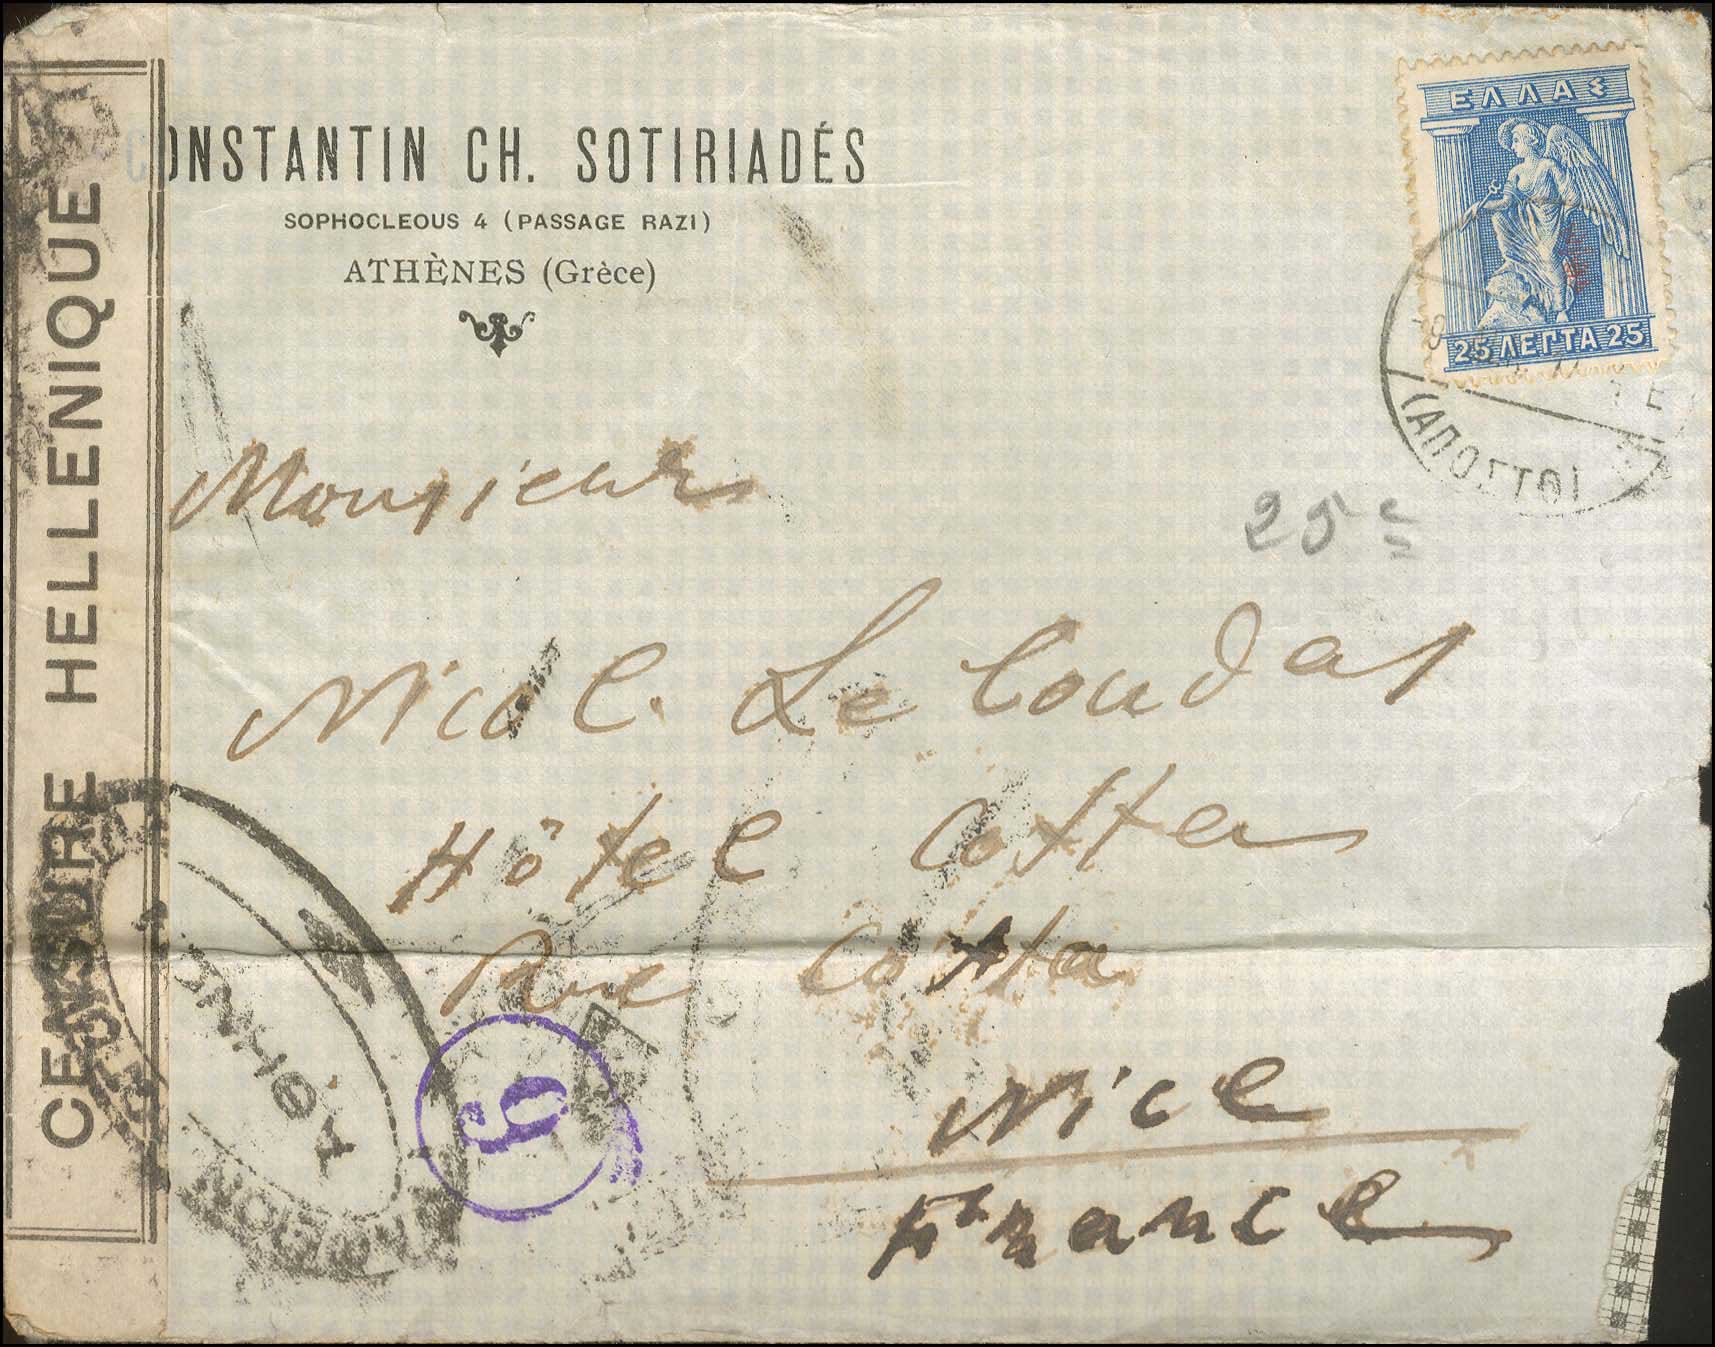 CENSURE HELLENIQUE
CONSTANTIN CH. SOTIRIADÉS
SOPHOCLEOUS 4 (PASSAGE RAZI)
ATHÈNES (Grèce)
ΕΛΛΑΣ
25 ΛΕΠΤΑ 25
(ΑΠΟΣΤΟΛ
25 c
Monsieur
Nicol. Le Coudas
Hôtel Cotta
Rue Cotta
Nice
France
9
ΑΘΗΝΩ